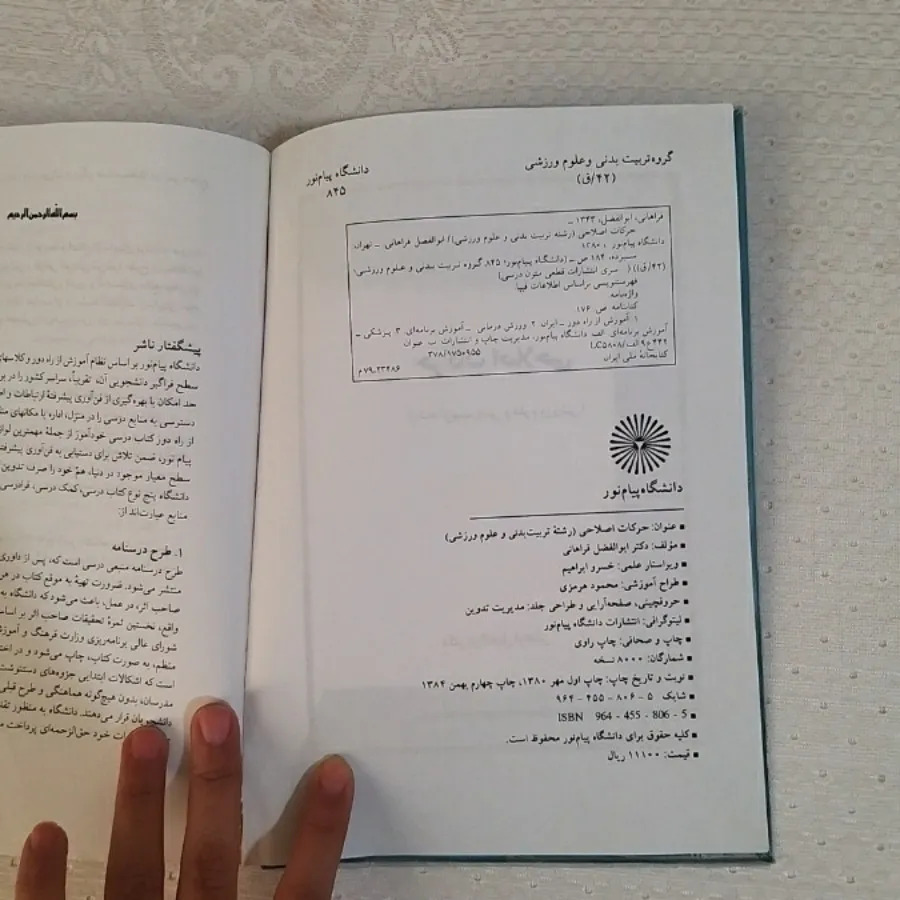 گروه تربیت بدنی و علوم ورزشی
(۴۲/ق)
دانشگاه پیام‌نور
۸۴۵
فراهانی، ابوالفضل، ۱۳۴۳ –
حرکات اصلاحی (رشته تربیت بدنی و علوم ورزشی)/ ابوالفضل فراهانی. – تهران:
دانشگاه پیام‌نور، ۱۳۸۰.
سیزده، ۱۸۴ ص. – (دانشگاه پیام‌نور؛ ۸۴۵. گروه تربیت بدنی و علوم ورزشی؛
(۴۲/ق)) ( سری انتشارات قطعی متون درسی)
فهرستنویسی براساس اطلاعات فیپا
واژه‌نامه
کتابنامه: ص. ۱۷۶
۱. آموزش از راه دور – ایران. ۲. ورزش درمانی – آموزش برنامه‌ای. ۳. پزشکی –
آموزش برنامه‌ای. الف. دانشگاه پیام‌نور. مدیریت چاپ و انتشارات. ب. عنوان
LC۵۸۰۸/
۳۷۸/۱۷۵۰۹۵۵
کتابخانهٔ ملی ایران
۷۹-۲۳۴۸۶م
دانشگاه پیام‌نور
▪ عنوان: حرکات اصلاحی (رشتهٔ تربیت‌بدنی و علوم ورزشی)
▪ مؤلف: دکتر ابوالفضل فراهانی
▪ ویراستار علمی: خسرو ابراهیم
▪ طراح آموزشی: محمود هرمزی
▪ حروفچینی، صفحه‌آرایی و طراحی جلد: مدیریت تدوین
▪ لیتوگرافی: انتشارات دانشگاه پیام‌نور
▪ چاپ و صحافی: چاپ راوی
▪ شمارگان: ۸۰۰۰ نسخه
▪ نوبت و تاریخ چاپ: چاپ اول مهر ۱۳۸۰، چاپ چهارم بهمن ۱۳۸۴
▪ شابک ۵ - ۸۰۶ - ۴۵۵ - ۹۶۴
▪ ISBN 964 - 455 - 806 - 5
▪ کلیه حقوق برای دانشگاه پیام‌نور محفوظ است.
▪ قیمت: ۱۱۱۰۰ ریال
بسم الله الرحمن الرحیم
پیشگفتار ناشر
دانشگاه پیام‌نور بر اساس نظام آموزش از راه دور و کلاسهای
سطح فراگیر دانشجویی آن، تقریباً، سراسر کشور را در بر
حد امکان با بهره‌گیری از فن‌آوری پیشرفتهٔ ارتباطات و
دسترسی به منابع درسی را در منزل، اداره یا مکانهای
از راه دور کتاب درسی خودآموز از جملهٔ مهمترین
پیام نور، ضمن تلاش برای دستیابی به فن‌آوری
سطح معیار موجود در دنیا، همّ خود را صرف تدوین
دانشگاه پنج نوع کتاب درسی، کمک درسی، فرادرسی
منابع عبارت‌اند از:
۱. طرح درسنامه
طرح درسنامه منبعی درسی است که، پس از داوری
منتشر می‌شود. ضرورت تهیهٔ به موقع کتاب در
صاحب اثر، در عمل، باعث می‌شود که دانشگاه به
واقع، نخستین ثمرهٔ تحقیقات صاحب اثر بر اساس
شورای عالی برنامه‌ریزی وزارت فرهنگ و آموزش
منظم، به صورت کتاب، چاپ می‌شود و در
است که اشکالات ابتدایی جزوه‌های دستنوشت
مدرسان، بدون هیچ‌گونه هماهنگی و طرح قبلی
دانشجویان قرار می‌دهند. دانشگاه به منظور
خود حق‌الزحمه‌ای پرداخت